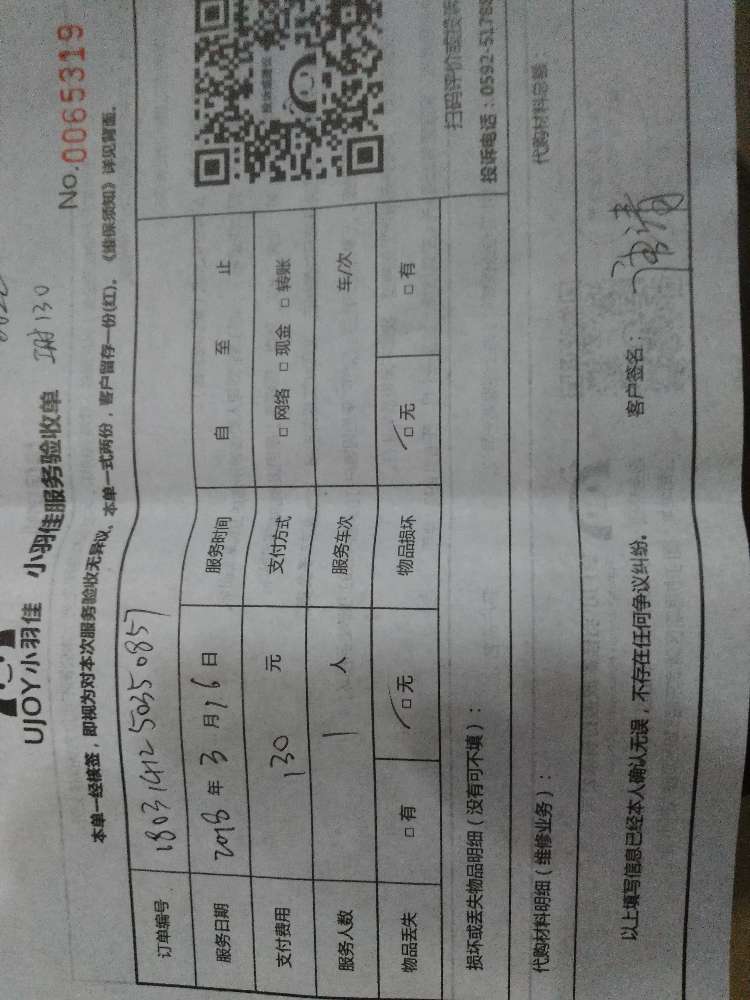 UJOY小羽佳 小羽佳服务验收单
No.0065319
本单一经核签，即视为对本次服务验收无异议，本单一式两份，客户留存一份(红)。《维保须知》详见背面。
订单编号 1803141250350857
服务日期 2018 年 3 月 16 日 服务时间 自 至 止
支付费用 130 元 支付方式 □ 网络 □ 现金 □ 转账
服务人数 1 人 服务车次 车/次
物品丢失 □ 有 □ 无 物品损坏 □ 无 □ 有
扫码评价或投诉
投诉电话：0592-5176
损坏或丢失物品明细（没有可不填）：
代购材料明细（维修业务）： 代购材料总额：
以上填写信息已经本人确认无误，不存在任何争议纠纷。 客户签名：